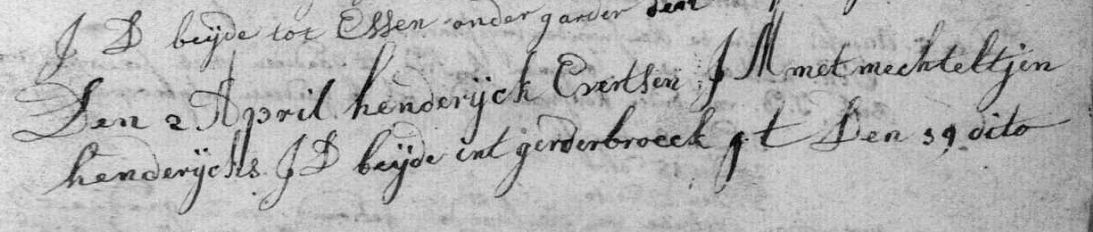 J D beijde tot Essen onder garder
Den 2 April henderijck Evertsen J M met mechteltjen
henderijcks J D beijde int gerderbroeck gt Den 19 dito